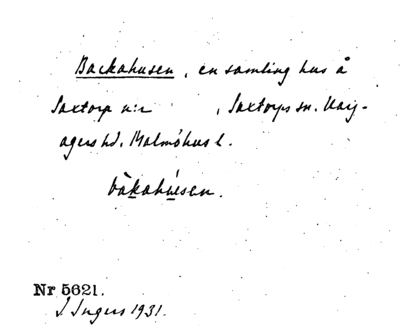 Backahusen, en samling hus å
Saxtorp n:r , Saxtorps sn. Harj-
agers hd. Malmöhus l.
bàkahúsen.
Nr 5621.
I. Ingers 1931.